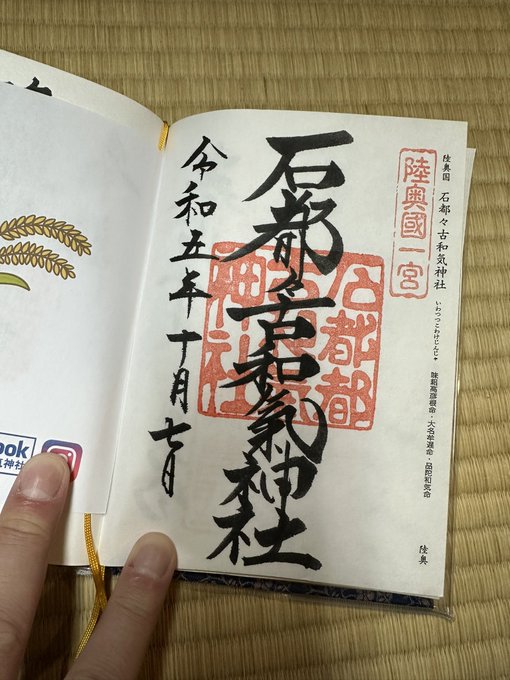 陸奥国 石都々古和気神社
いわつつこわけじんじゃ
味耜高彦根命・大名牟遅命・品陀和気命
陸奥
陸奥國一宮
石都々古和氣神社
石都都
神社
令和五年十月七日
ook
気神社